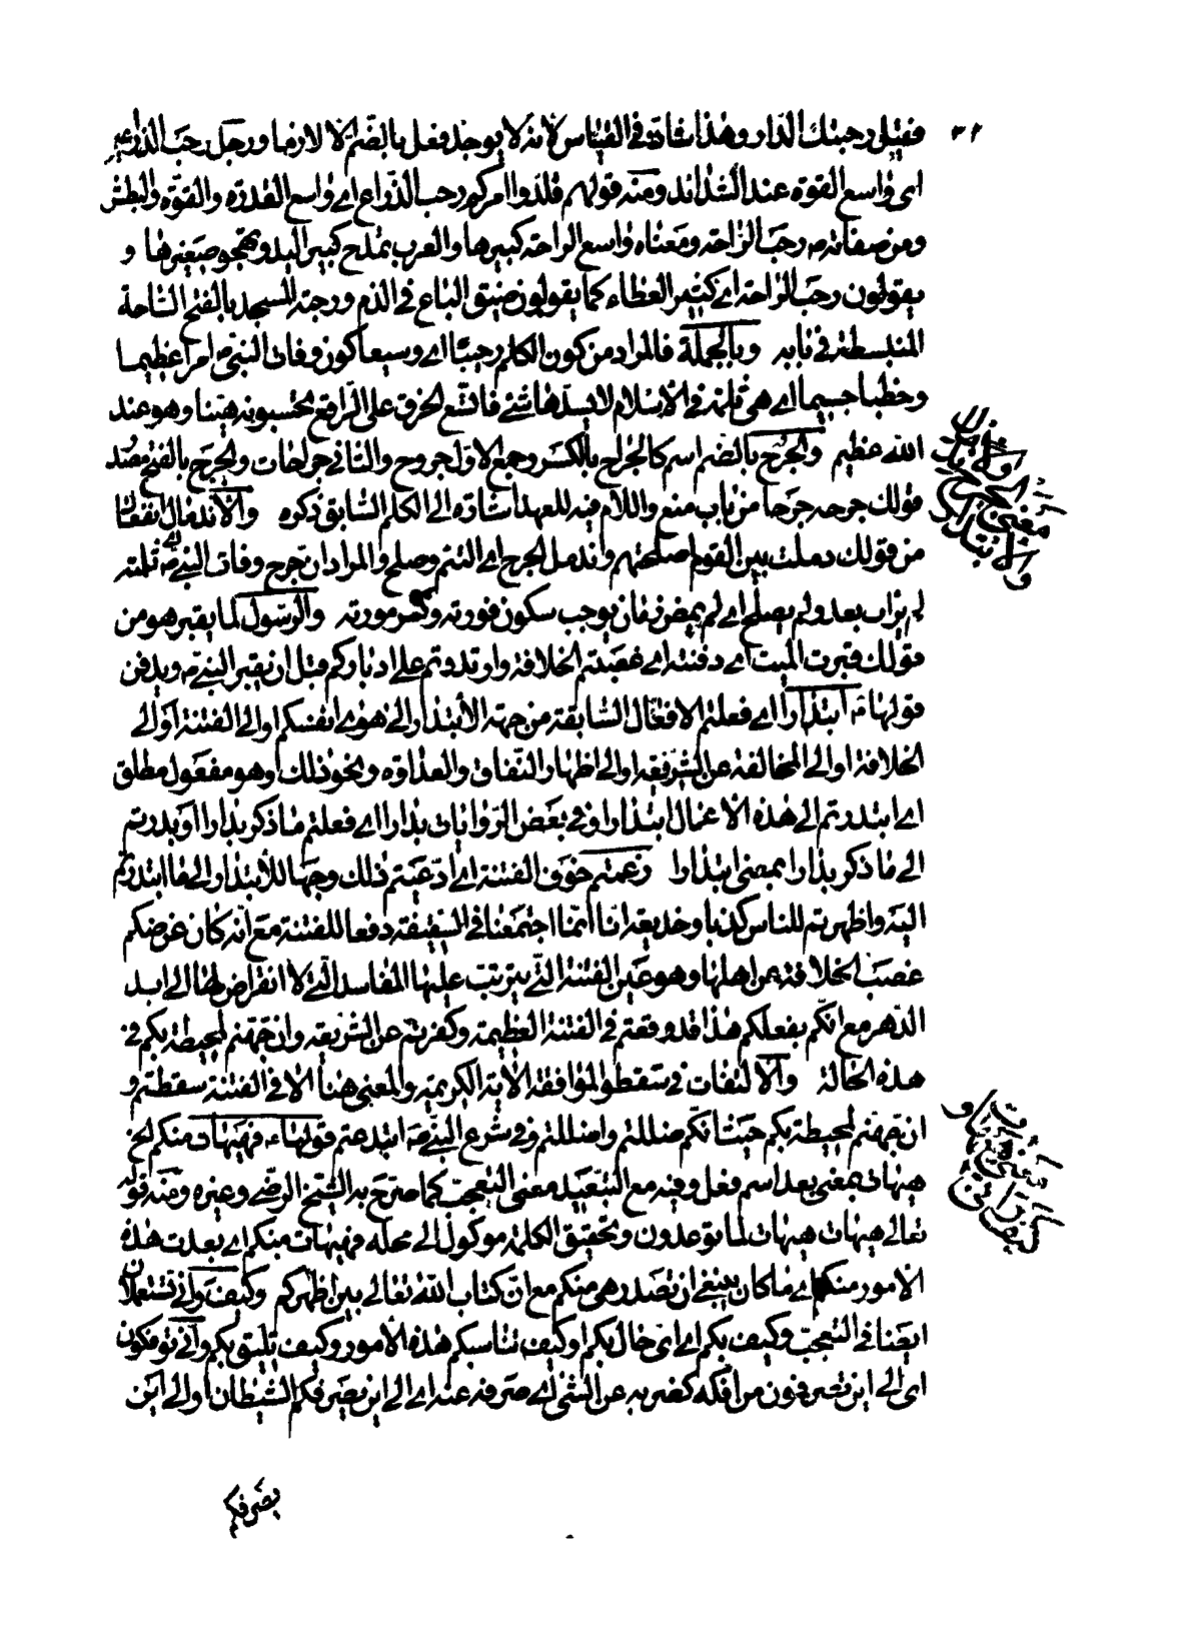 فقيل رحبتك الدار وهذا شاذ في القياس لانه لا يوجد فعل بالضم الا لازما ورجل رحب الذراع
اى واسع القوة عند الشدائد ومنه قولهم قلدوا امركم رحب الذراع اى واسع القدرة والقوة والبطش
ومن صفاته ص رحب الراحة ومعناه واسع الراحة كبيرها والعرب تمدح كبير اليد وتهجو صغيرها و
يقولون رحب الراحة اى كثير العطاء كما يقولون ضيق الباع في الذم ورحبة المسجد بالفتح الساحة
المنبسطة في بابه وبالجملة فالمراد من كون الكلم رحيبا اى وسيعا كون وفات النبي ص امرا عظيما
وخطبا جسيما اى هي ثلمة في الاسلام لا يسدها شئ فاتسع الخرق على الراقع تحسبونه هينا وهو عند
الله عظيم والجرح بالضم اسم كالجراح بالكسر وجمع الاول جروح والثاني جراحات والجرح بالفتح مصدر
قولك جرحه جرحا من باب منع واللام فيه للعهد اشارة الى الكلم السابق ذكره والاندمال انفعال
من قولك دملت بين القوم اصلحتهم واندمل الجرح اى التئم وصلح والمراد ان جرح وفات النبي ص اى ثلمته
لم يراب بعد ولم يصلح اى لم يمض زمان يوجب سكون فورته وكسر سورته والرسول لما يقبر هو من
قولك قبرت الميت اى دفنته اى غصبتم الخلافة وارتددتم على ادباركم قبل ان يقبر النبي ص ويدفن
قولها ع ابتدارا اى فعلتم الافعال السابقة من جهة الابتدار الى هوى انفسكم او الى الفتنة او الى
الخلافة او الى المخالفة عن الشريعة او الى اظهار النفاق والعداوة ونحو ذلك وهو مفعول مطلق
اى ابتدرتم الى هذه الاعمال ابتدارا وفي بعض الروايات بدارا اى فعلتم ما ذكر بدارا او بدرتم
الى ما ذكر بدارا بمعنى ابتدارا زعمتم خوف الفتنة اى ادعيتم ذلك وجها للابتدار الى ما ابتدرتم
اليه واظهرتم للناس كذبا وخديعة انا انما اجتمعنا في السقيفة دفعا للفتنة مع انه كان غرضكم
غصب الخلافة عن اهلها وهو عين الفتنة التي يترتب عليها المفاسد التي لا انقراض لها الى ابد
الدهر مع انكم بفعلكم هذا قد وقعتم في الفتنة العظيمة وكفرتم عن الشريعة وان جهنم لمحيطة بكم في
هذه الحالة والالتفات في سقطوا لموافقة الآية الكريمة والمعنى هنا الا في الفتنة سقطتم و
ان جهنم لمحيطة بكم حيث انكم ضللتم واضللتم وفي شرع النبي ص ابتدعتم قولها ع فهيهات منكم الخ
هيهات بمعنى بعد اسم فعل وفيه مع التبعيد معنى التعجب كما صرح به الشيخ الرضي وغيره ومنه قوله
تعالى هيهات هيهات لما توعدون وتحقيق الكلمة موكول الى محله فهيهات منكم اى بعدت هذه
الامور منكم اى ما كان ينبغي ان تصدر هي منكم مع ان كتاب الله تعالى بين اظهركم وكيف وانى تستعملان
ايضا في التعجب وكيف بكم اى اى حال بكم او كيف تناسبكم هذه الامور وكيف تليق بكم وانى تؤفكون
اى الى اين تصرفون من افكه كضربه عن الشئ اى صرفه عنه اى الى اين يصرفكم الشيطان او الى اين
يصرفكم